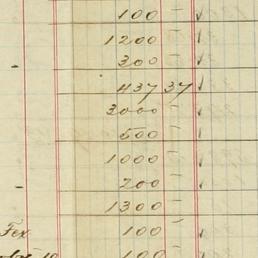 100 –
1200 –
300 –
437 37
3000 –
500 –
1000 –
200 –
1300 –
Fex 100 –
100 –